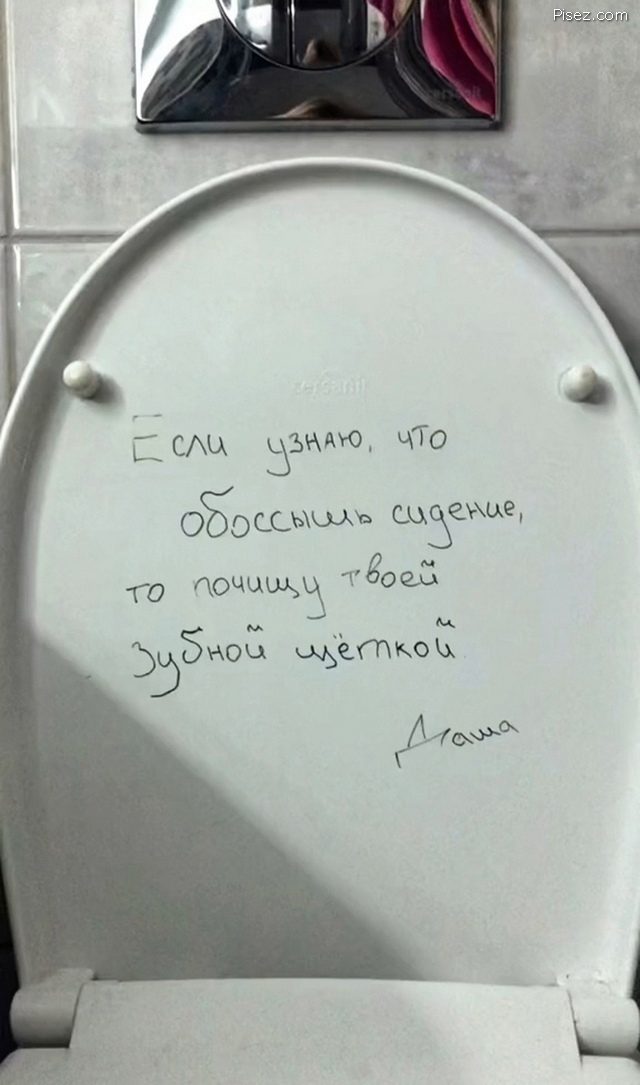 Pisez.com
cersanit
Если узнаю, что
обоссышь сидение,
то почищу твоей
зубной щёткой
Даша